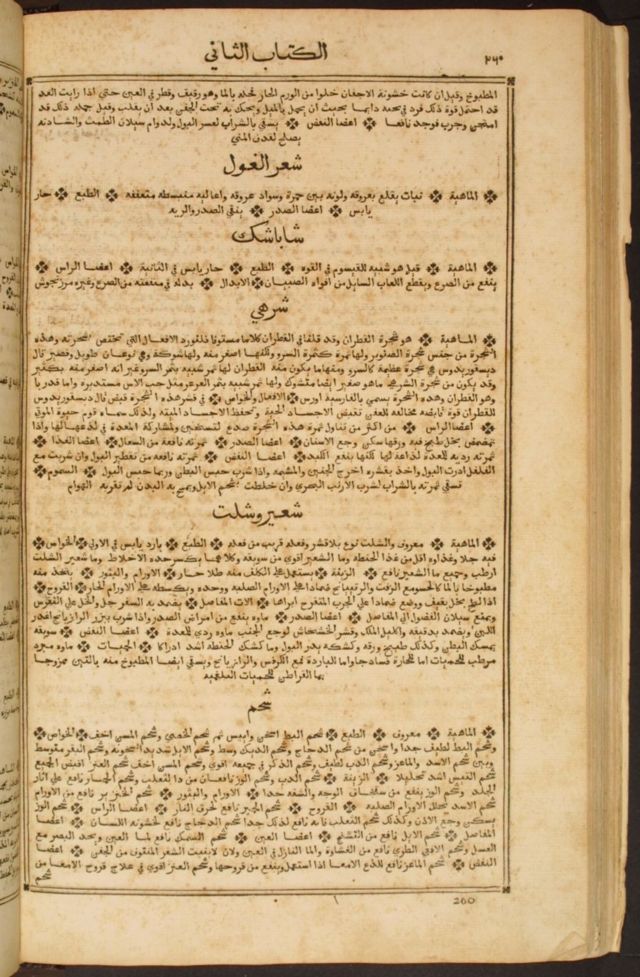 ٢٦٠ الكتاب الثاني
المطبوخ وقيل ان كانت خشونة الاجفان خلوا من الورم الحار تحله بالما وهو رقيق وقطر في العين حتى اذا رايت العد
قد احتمل قوة ذلك فزد في دايما بحيث ان يحمل بالميل ويحك به تحت الجفن بعد ان يقلب وقيل جملة ذلك قد
امتحن وجرب فوجد نافعا اعضا النفض يسقي بالشراب لعسر البول ولدوام سيلان الطمث والشادنه
يصلح لقذف المني
شعر الغول
الماهية نبات يقلع بعروقه ولونه بين حمرة وسواد عروقه واعاليه منبسطه متعقفه الطبع حار
يابس اعضا الصدر ينقي الصدر والريه
شاباشك
الماهية قيل هو شبيه للقيسوم في القوه الطبع حار يابس في الثانية اعضا الراس
ينفع من الصرع ويقطع اللعاب السايل من افواه الصبيان الابدال بدله في منفعته من الصرع وغيره مرزنجوش
شربين
الماهية هو شجرة القطران وقد قلنا في القطران كلاما مستوفا فلنورد الافعال التي تختص بشجرته وهذه
الشجرة من جنس شجرة الصنوبر ولها ثمرة كثمرة السرو ولكنها اصغر منه ولها شوكة وهي نوعان طويل وقصير قال
ديسقوريدوس هي شجرة عظيمة كالسرو ومنها ما يكون منه القطران لها ثمر شبيه بثمر السرو غير انه اصغر منه بكثير
وقد يكون من شجرة الشربين ما هو صغير ايضا متشوك ولها ثمر شبيه بثمر العرعر مثل حب الاس مستديره واما قدريا
وهو القطران وهذه الشجرة يسمى بالفارسية اورس الافعال والخواص في قشر هذه الشجرة قبض قال ديسقوريدوس
للقطران قوة قابضه مخالفه للعفن تقبض الاجساد الحية وتحفظ الاجساد الميته ولذلك سماه قوم حيوة الموتي
اعضا الراس من اكثر من تناول ثمرة هذه الشجرة صدع لتسخين ولمشاركة المعدة في لذعها لها واذا
تمضمض بخل طبخ فيه ورقها سكن وجع الاسنان اعضا الصدر ثمرته نافعة من السعال اعضا الغذا
ثمرته رديه للمعدة لذاعة لها لكنها ينفع الكبد اعضا النفض ثمرته نافعه من تقطير البول وان شربت مع
الفلفل ادرت البول واخذ بقشره اخرج الجنين والمشيمه واذا شرب حبس البطن وربما حبس البول السموم
تسقي ثمرته بالشراب لشرب الارنب البحري وان خلطت بشحم الابل ومسح به البدن لم تقربه الهوام
شعير وشلت
الماهية معروف والشلت نوع بلا قشر وفعله قريب من فعله الطبع بارد يابس في الاولي الخواص
فيه جلا وغذاوه اقل من غذا الحنطه وما الشعير اقوي من سويقه وكلاهما يكسر حده الاخلاط وما شعير الشلت
ارطب وجميع ما الشعير نافخ الزينة يستعمل علي الكلف منه طلا حار الاورام والبثور يتخذ منه
مطبوخا بالما كالحسو مع الزفت والراتينج ضمادا علي الاورام الصلبه ووحده وبكسكه علي الاورام الحار القروح
اذا لطخ بخل ثقيف ووضع ضمادا علي الجرب المتقرح ابراها الات المفاصل يضمد به السفرجل والخل علي النقرس
ويمنع سيلان الفضول الي المفاصل اعضا الصدر ماوه ينفع من امراض الصدر واذا شرب ببزر الرازيانج اغزر
اللبن ويضمد بدقيقه واكليل الملك وقشر الخشخاش لوجع الجنب ماوه ردي للمعدة اعضا النفض سويقه
يمسك البطن وكذلك طبيخ ورقه وكشكه يدر البول وما كشك الحنطه اشد ادرارا الحميات ماوه مبرد
مرطب للحميات اما للحارة فساذجا واما الباردة فمع الكرفس والرازيانج ويسقي ايضا المطبوخ منه بالتين ممزوجا
بما القراطن للحميات البلغميه
شحم
الماهية معروف الطبع شحم البط اسخن وايبس ثم شحم الخصي وشحم المسن اخف الخواص
وشحم البط لطيف جدا واسخن من شحم الدجاج وشحم الديك وسط وشحم الابل شديد السخونه وشحم البقر متوسط
وبين شحم الاسد والماعز وشحم الدب لطيف وشحم الذكر في جميعه اقوي وشحم المسن اخف شحم العنز اقبض الجميع
شحم التيس اشد تحليلا الزينة شحم الدب وشحم الوز نافعان من دا الثعلب وشحم الحمار نافع علي اثار
الجلد وشحم الوز ينفع من شقاق الوجه والشفه جدا الاورام والبثور شحم الخنزير نافع من الاورام
شحم الاسد تحلل الاورام الصلبه القروح شحم الخنزير نافع لحرق النار اعضا الراس شحم الوز
يسكن وجع الاذن وكذلك شحم الثعلب نافع لذلك جدا شحم الدجاج نافع لخشونه اللسان اعضا
المفاصل شحم الابل نافع من التشنج اعضا العين شحم السمك نافع لما العين ويحد البصر مع
العسل وشحم الافعي الطري نافع من الغشاوة والما النازل في العين ولان لا ينبت الشعر المنتوف من الجفن اعضا
النفض شحم الماعز نافع للذع الامعا اذا استعمل وينفع من قروحها وشحم العنز اقوي في علاج قروح الامعا من
شحم
260